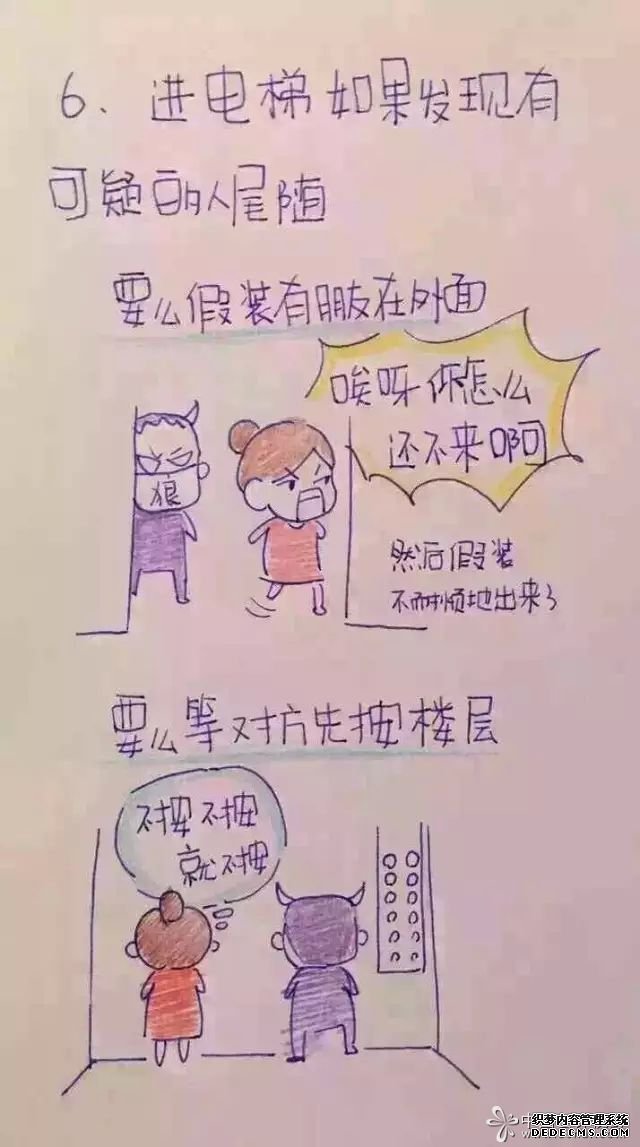 6、进电梯如果发现有
可疑的人尾随
要么假装有朋友在外面
唉呀你怎么
还不来啊
狼
然后假装
不耐烦地出来了
要么等对方先按楼层
不按不按
就不按
织梦内容管理系统
DEDECMS.COM